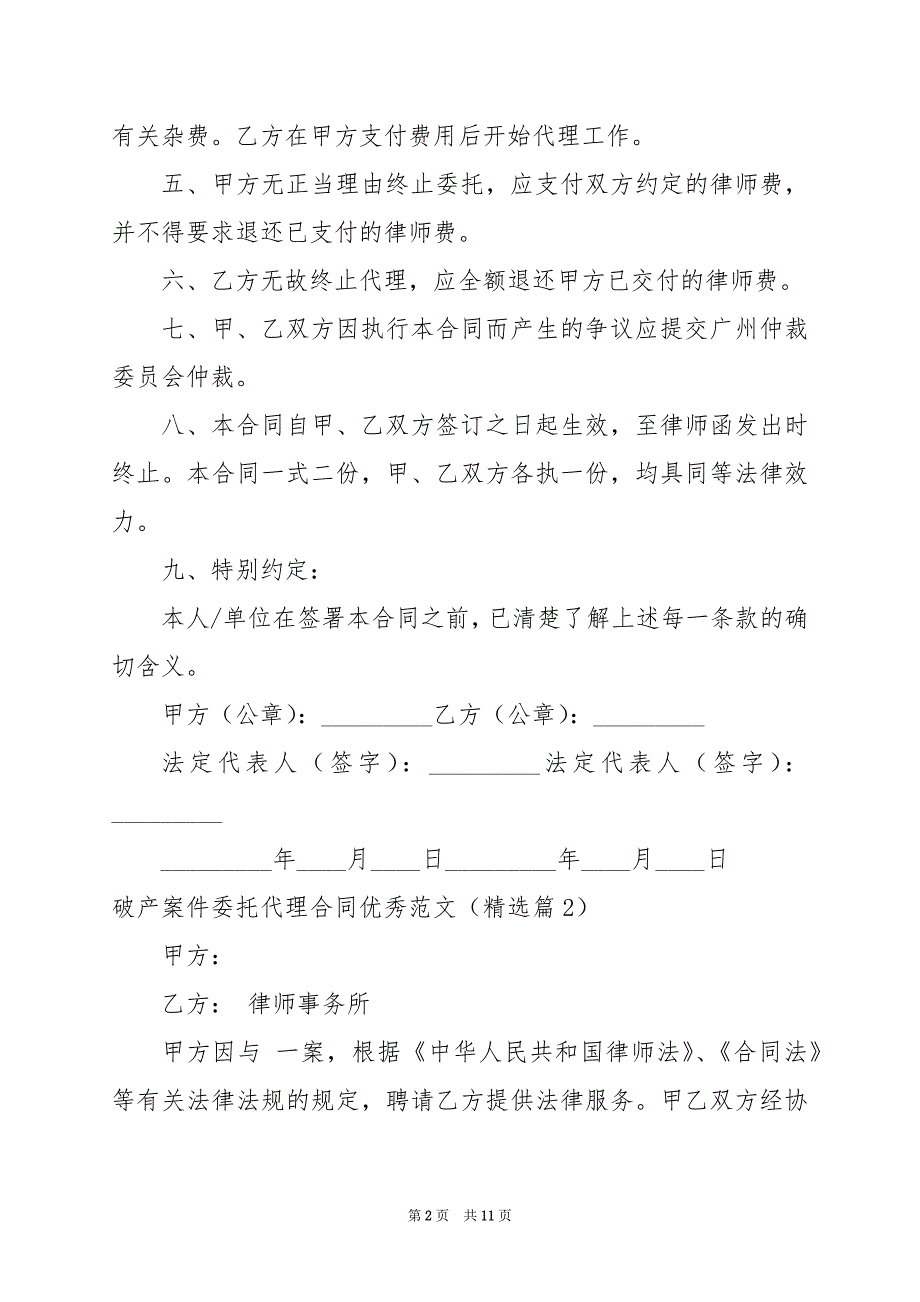 有关杂费。乙方在甲方支付费用后开始代理工作。
五、甲方无正当理由终止委托，应支付双方约定的律师费，
并不得要求退还已支付的律师费。
六、乙方无故终止代理，应全额退还甲方已交付的律师费。
七、甲、乙双方因执行本合同而产生的争议应提交广州仲裁
委员会仲裁。
八、本合同自甲、乙双方签订之日起生效，至律师函发出时
终止。本合同一式二份，甲、乙双方各执一份，均具同等法律效
力。
九、特别约定：
本人/单位在签署本合同之前，已清楚了解上述每一条款的确
切含义。
甲方（公章）：_________乙方（公章）：_________
法定代表人（签字）：_________法定代表人（签字）：
_________
_________年____月____日_________年____月____日
破产案件委托代理合同优秀范文（精选篇2）
甲方：
乙方： 律师事务所
甲方因与 一案，根据《中华人民共和国律师法》、《合同法》
等有关法律法规的规定，聘请乙方提供法律服务。甲乙双方经协
第 2 页 共 11 页